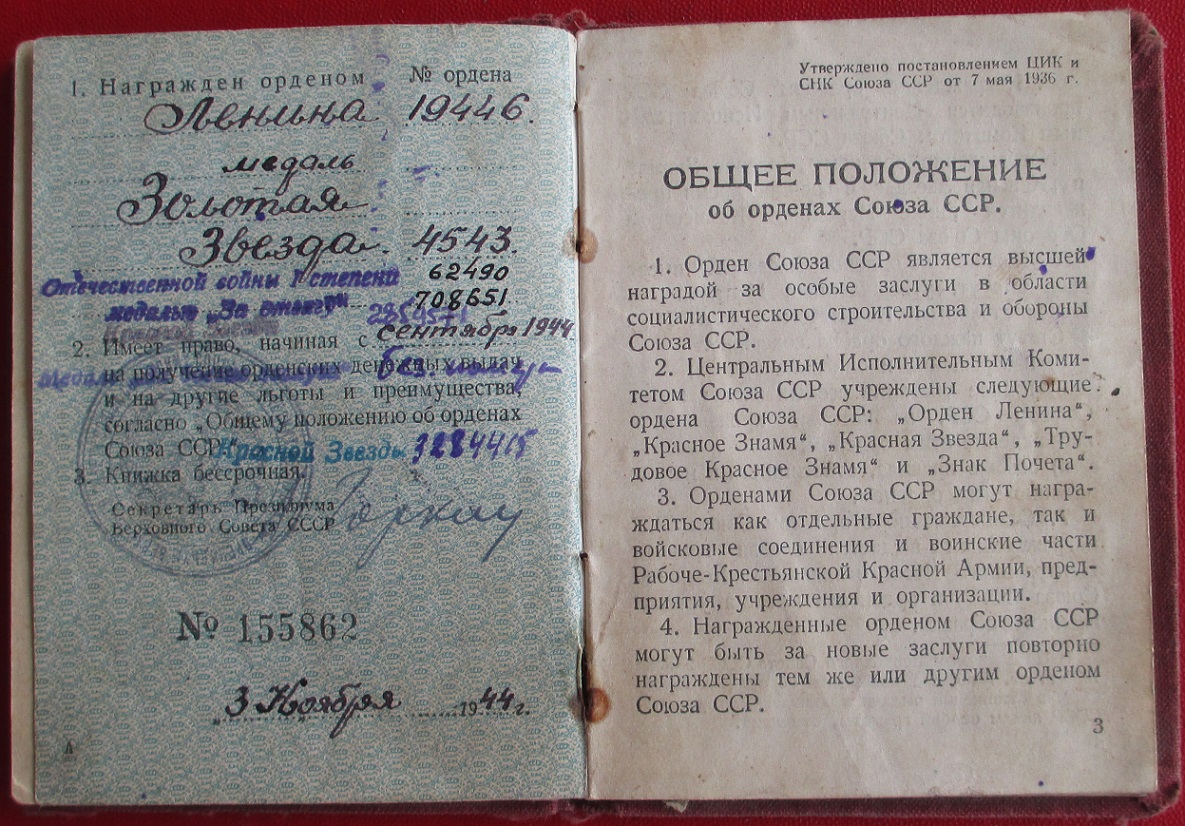 1. Награжден орденом № ордена
Ленина 19446.
медаль
Золотая
Звезда 4543.
Отечественной войны I степени 62490
медалью „За отвагу 708651
Красной Звезды
2. Имеет право, начиная с сентября 1944
на получение орденских денежных выдач
и на другие льготы и преимущества,
согласно „Общему положению об орденах
Союза ССР Красной Звезды 3284415
3. Книжка бессрочная.
Секретарь Президиума
Верховного Совета СССР
№ 155862
„3 Ноября 1944 г.
А
Утверждено постановлением ЦИК и
СНК Союза ССР от 7 мая 1936 г.
ОБЩЕЕ ПОЛОЖЕНИЕ
об орденах Союза ССР.
1. Орден Союза ССР является высшей
наградой за особые заслуги в области
социалистического строительства и обороны
Союза ССР.
2. Центральным Исполнительным Коми-
тетом Союза ССР учреждены следующие
ордена Союза ССР: „Орден Ленина“,
„Красное Знамя“, „Красная Звезда“, „Тру-
довое Красное Знамя“ и „Знак Почета“.
3. Орденами Союза ССР могут награ-
ждаться как отдельные граждане, так и
войсковые соединения и воинские части
Рабоче-Крестьянской Красной Армии, пред-
приятия, учреждения и организации.
4. Награжденные орденом Союза ССР
могут быть за новые заслуги повторно
награждены тем же или другим орденом
Союза ССР.
3